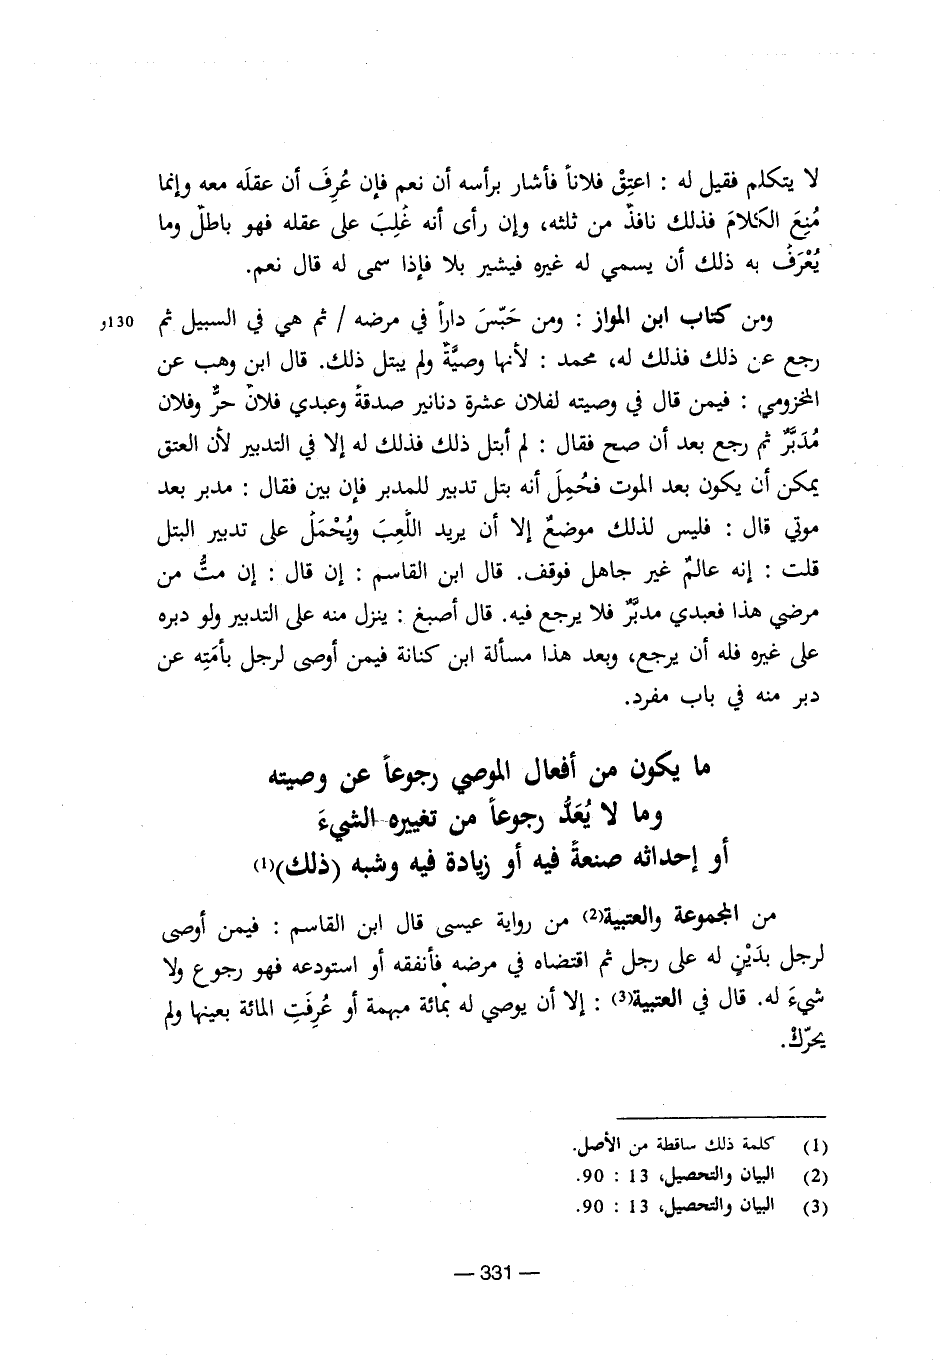 لا يتكلم فقيل له : اعتِقْ فلاناً فأشار برأسه أن نعم فإن عُرِفَ أن عقلَه معه وإنما
مُنِعَ الكلامَ فذلك نافذٌ من ثلثه، وإن رأى أنه غُلِبَ على عقله فهو باطلٌ وما
يُعْرَفُ به ذلك أن يسمي له غيره فيشير بلا فإذا سمى له قال نعم.
ومن كتاب ابن المواز : ومن حَبّسَ داراً في مرضه / ثم هي في السبيل ثم 130و
رجع عن ذلك فذلك له، محمد : لأنها وصيَّةٌ ولم يبتل ذلك. قال ابن وهب عن
المخزومي : فيمن قال في وصيته لفلان عشرة دنانير صدقةً وعبدي فلانٌ حرٌّ وفلان
مُدَبَّرٌ ثم رجع بعد أن صح فقال : لم أبتل ذلك فذلك له إلا في التدبير لأن العتق
يمكن أن يكون بعد الموت فحُمِلَ أنه بتل تدبير للمدبر فإن بين فقال : مدبر بعد
موتي قال : فليس لذلك موضعٌ إلا أن يريد اللَّعِبَ ويُحْمَلُ على تدبير البتل
قلت : إنه عالمٌ غير جاهل فوقف. قال ابن القاسم : إن قال : إن متُّ من
مرضي هذا فعبدي مدبَّرٌ فلا يرجع فيه. قال أصبغ : ينزل منه على التدبير ولو دبره
على غيره فله أن يرجع، وبعد هذا مسألة ابن كنانة فيمن أوصى لرجل بأمَتِه عن
دبر منه في باب مفرد.
ما يكون من أفعال الموصي رجوعاً عن وصيته
وما لا يُعَدُّ رجوعاً من تغييره الشيءَ
أو إحداثه صنعةً فيه أو زيادة فيه وشبه (ذلك)(1)
من المجموعة والعتبية(2) من رواية عيسى قال ابن القاسم : فيمن أوصى
لرجل بدَيْنٍ له على رجل ثم اقتضاه في مرضه فأنفقه أو استودعه فهو رجوع ولا
شيءَ له. قال في العتبية(3) : إلا أن يوصي له بمائة مبهمة أو عُرِفَتِ المائة بعينها ولم
يحرّكْ.
(1) كلمة ذلك ساقطة من الأصل.
(2) البيان والتحصيل، 13 : 90.
(3) البيان والتحصيل، 13 : 90.
— 331 —